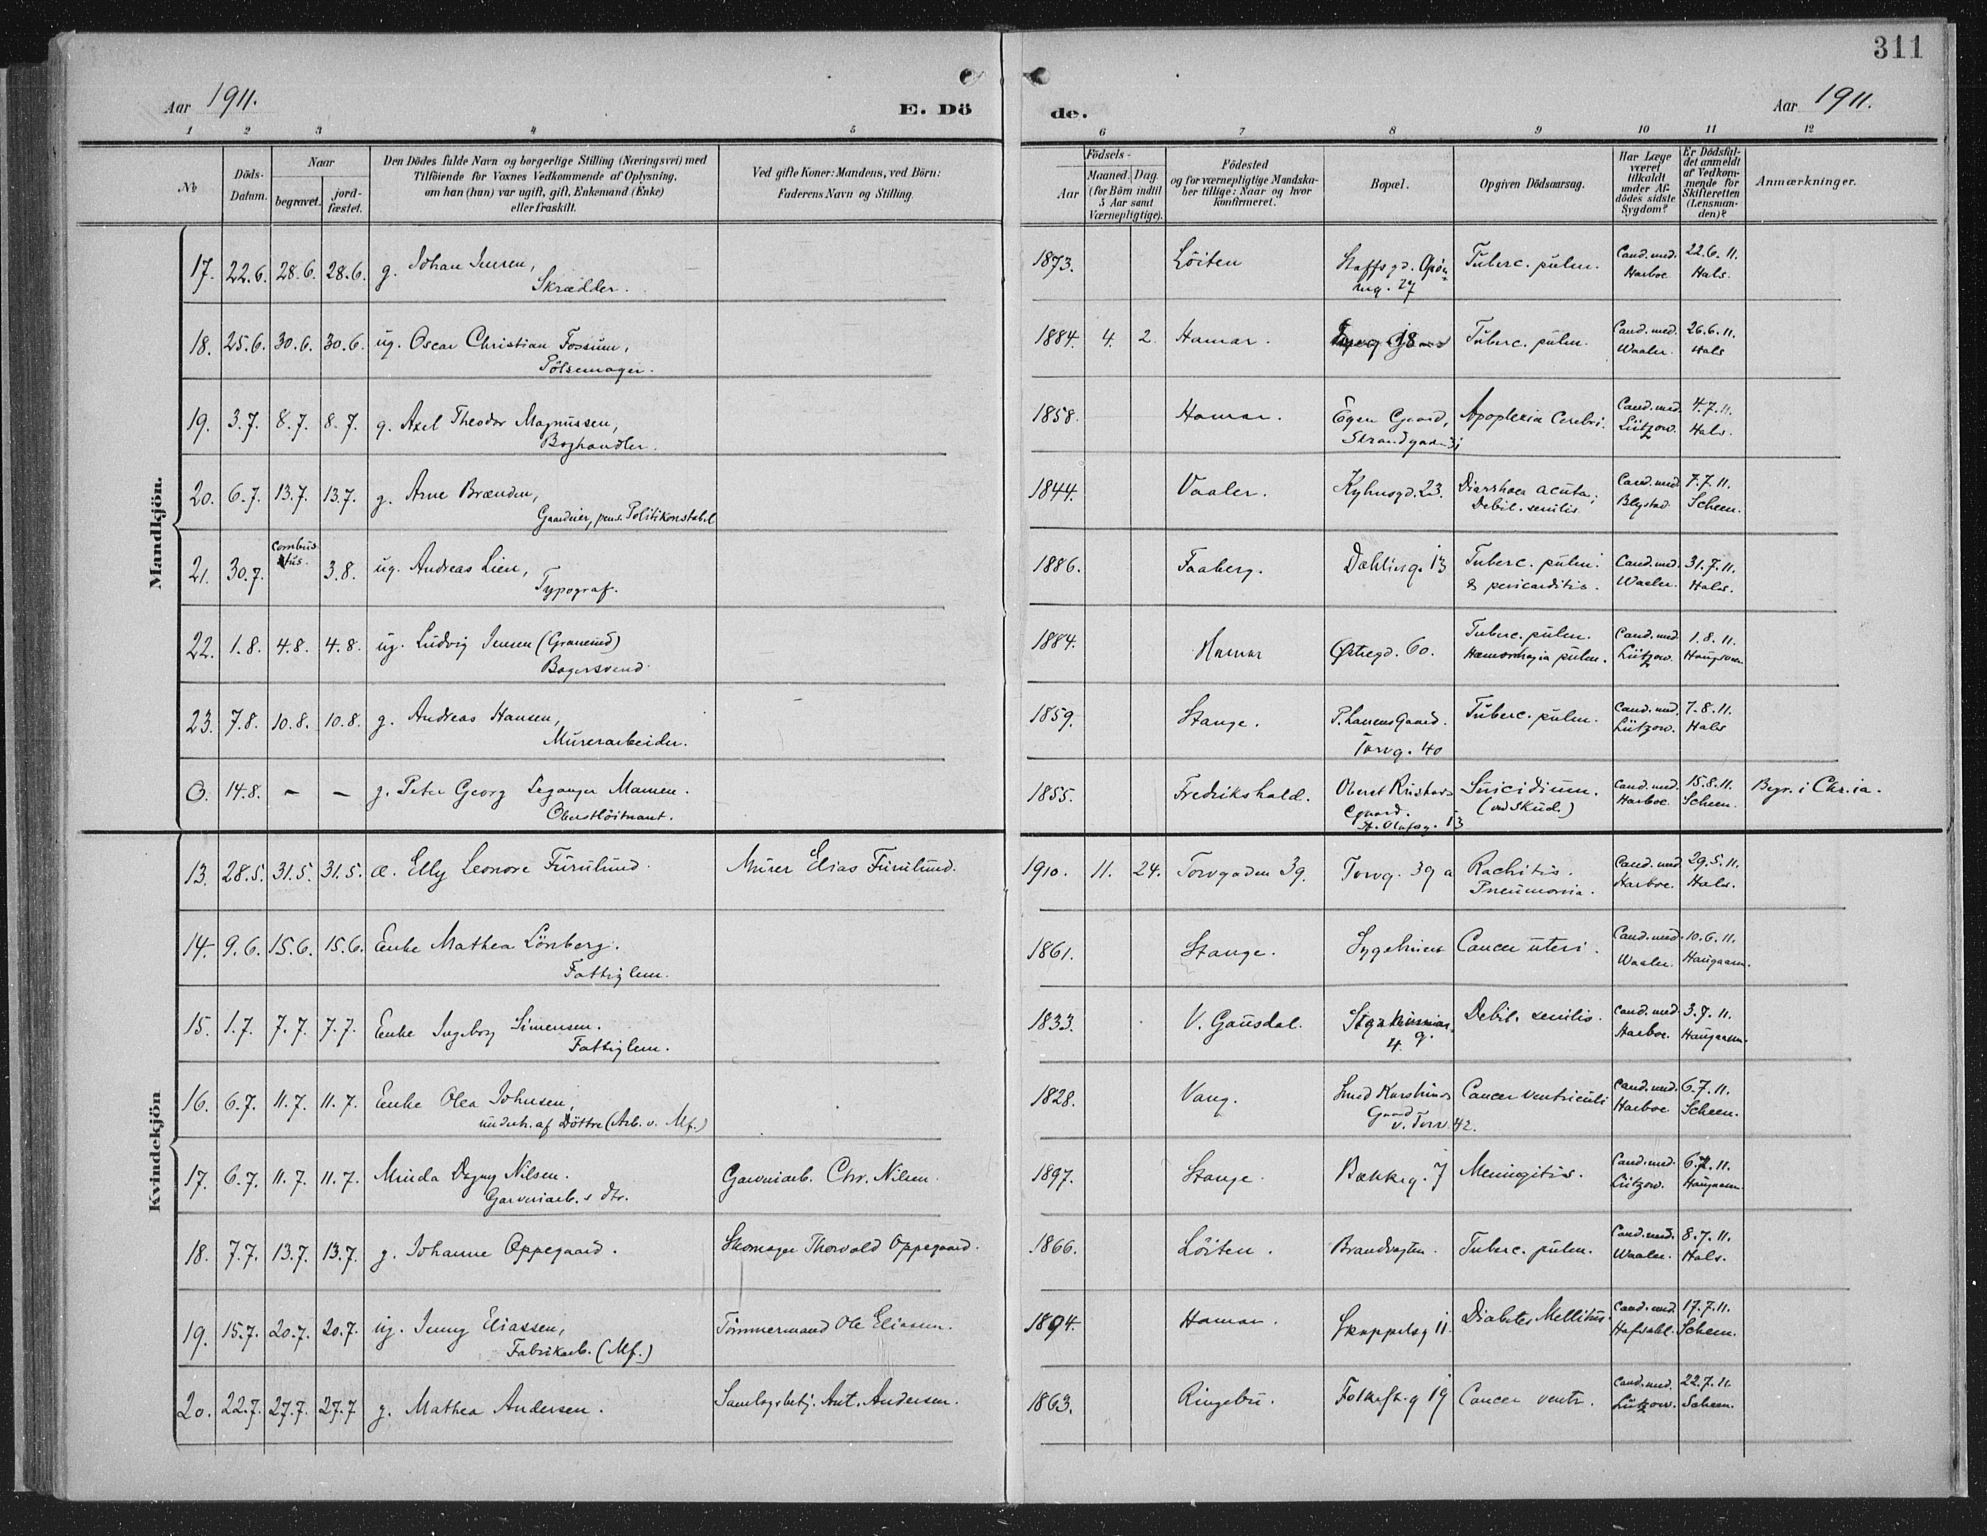 311
Aar 1911.
E. Dö
de.
Aar 1911.
1 2 3 4 5 6 7 8 9 10 11 12
No
Döds-Datum.
Naar
begravet.
jord-fæstet.
Den Dödes fulde Navn og borgerlige Stilling (Næringsvei) med
Tilföiende for Voxnes Vedkommende af Oplysning,
om han (hun) var ugift, gift, Enkemand (Enke)
eller fraskilt.
Ved gifte Koner: Mandens, ved Börn:
Faderens Navn og Stilling.
Födsels-
Aar
Maaned. Dag.
(for Börn indtil
5 Aar samt
Værnepligtige).
Födested
og for værnepligtige Mandska-
ber tillige: Naar og hvor
konfirmeret.
Bopæl.
Opgiven Dödsaarsag.
Har Læge
været
tilkaldt
under Af-
dödes sidste
Sygdom?
Er Dödsfal-
det anmeldt
af Vedkom-
mende for
Skifteretten
(Lensman-
den)?
Anmærkninger.
Mandkjön.
17. 22.6. 28.6. 28.6. g. Johan Jensen, 1873. Löiten Tuberc. pulm. Cand. med. 22.6.11.
Skrædder. 27 Harboe Hals.
18. 25.6. 30.6. 30.6. ug. Oscar Christian Fossum, 1884. 4. 2. Hamar. Tuberc. pulm. Cand. med. 26.6.11.
Pölsemager. Waaler. Hals
19. 3.7. 8.7. 8.7. g. Axel Theodor Magnussen, 1858. Hamar. Egen Gaard, Apoplexia Cerebri. Cand. med. 4.7.11.
Boghandler. Strandgaden Lützow. Hals.
20. 6.7. 13.7. 13.7. g. Arne Brænden, 1844. Vaaler. Kyhnsgd. 23. Diarrhoea acuta; Cand. med 7.7.11.
Gaardeier, pens. Politikonstabel Debil. senilis Blystad Scheen.
21. 30.7. combustus. 3.8. ug. Andreas Lien, 1886. Faaberg. Dahlisg. 13 Tuberc. pulm. Cand. med 31.7.11.
Typograf. & pericarditis. Waaler. Hals.
22. 1.8. 4.8. 4.8. ug. Ludvig Jensen (Granerud) 1884. Hamar Østregd. 60. Tuberc. pulm. Cand. med 1.8.11.
Bagersvend Hæmorrhagia pulm. Lützow.
23. 7.8. 10.8. 10.8. g. Andreas Hansen, 1859. Stange. P. Larsens Gaard. Tuberc. pulm. Cand. med. 7.8.11.
Murerarbeider. Torvg. 40 Lützow. Hals
O. 14.8. – – g. Peter Georg Leganger Mamen. 1855. Fredrikshald. Oberst Suicidium. Cand. med. 15.8.11. Begr. i Chr.ia.
Oberstlöitnant. Gaard. St. Olafsg. 13 (ved Skud.) Harboe Scheen.
Kvindekjön
13. 28.5. 31.5. 31.5. æ. Elly Leonore Furulund. Murer Elias Furulund. 1910. 11. 24. Torvgaden 39. Torvg. 39 a Rachitis. Cand. med 29.5.11.
Pneumonia. Harboe. Hals.
14. 9.6. 15.6. 15.6. Enke Mathea Lönberg. 1861. Stange. Sygehuset Cancer uteri. Cand. med. 10.6.11.
Fattiglem. Waaler. Haugaasen.
15. 1.7. 7.7. 7.7. Enke Ingeborg Simensen. 1833. V. Gausdal. Debil. senilis. Cand. med. 3.7.11.
Fattiglem. 4. Harboe. Haugaasen.
16. 6.7. 11.7. 11.7. Enke Olea Johnsen, 1828. Vang. Cancer ventriculi Cand. med. 6.7.11.
underh. af Döttre (Arb. v. Mf.) Gaard v. Torv. 42. Harboe Scheen.
17. 6.7. 11.7. 11.7. Minda Dagny Nilsen. Garveriarb. Chr. Nilsen. 1897. Stange. Bækkeg. 7 Meningitis. Cand. med. 6.7.11.
Garveriarb.s dtr. Lützow. Haugaasen.
18. 7.7. 13.7. 13.7. g. Johanne Oppegaard. Skomager Thorvald Oppegaard. 1866. Löiten. Brandvagten. Tuberc. pulm. Cand. med. 8.7.11.
Waaler. Hals.
19. 15.7. 20.7. 20.7. ug. Jenny Eliassen, Tömmermand Ole Eliassen. 1894. Hamar. Skappelsg 11. Diabetes Mellitus Cand. med. 17.7.11.
Fabrikarb. (Mf.) Hafsahl. Scheen.
20. 22.7. 27.7. 27.7 g. Mathea Andersen. Samlagsbetj. Ant. Andersen. 1863. Ringebu. Folkest. g 19 Cancer ventr. Cand. med. 22.7.11.
Lützow. Scheen.